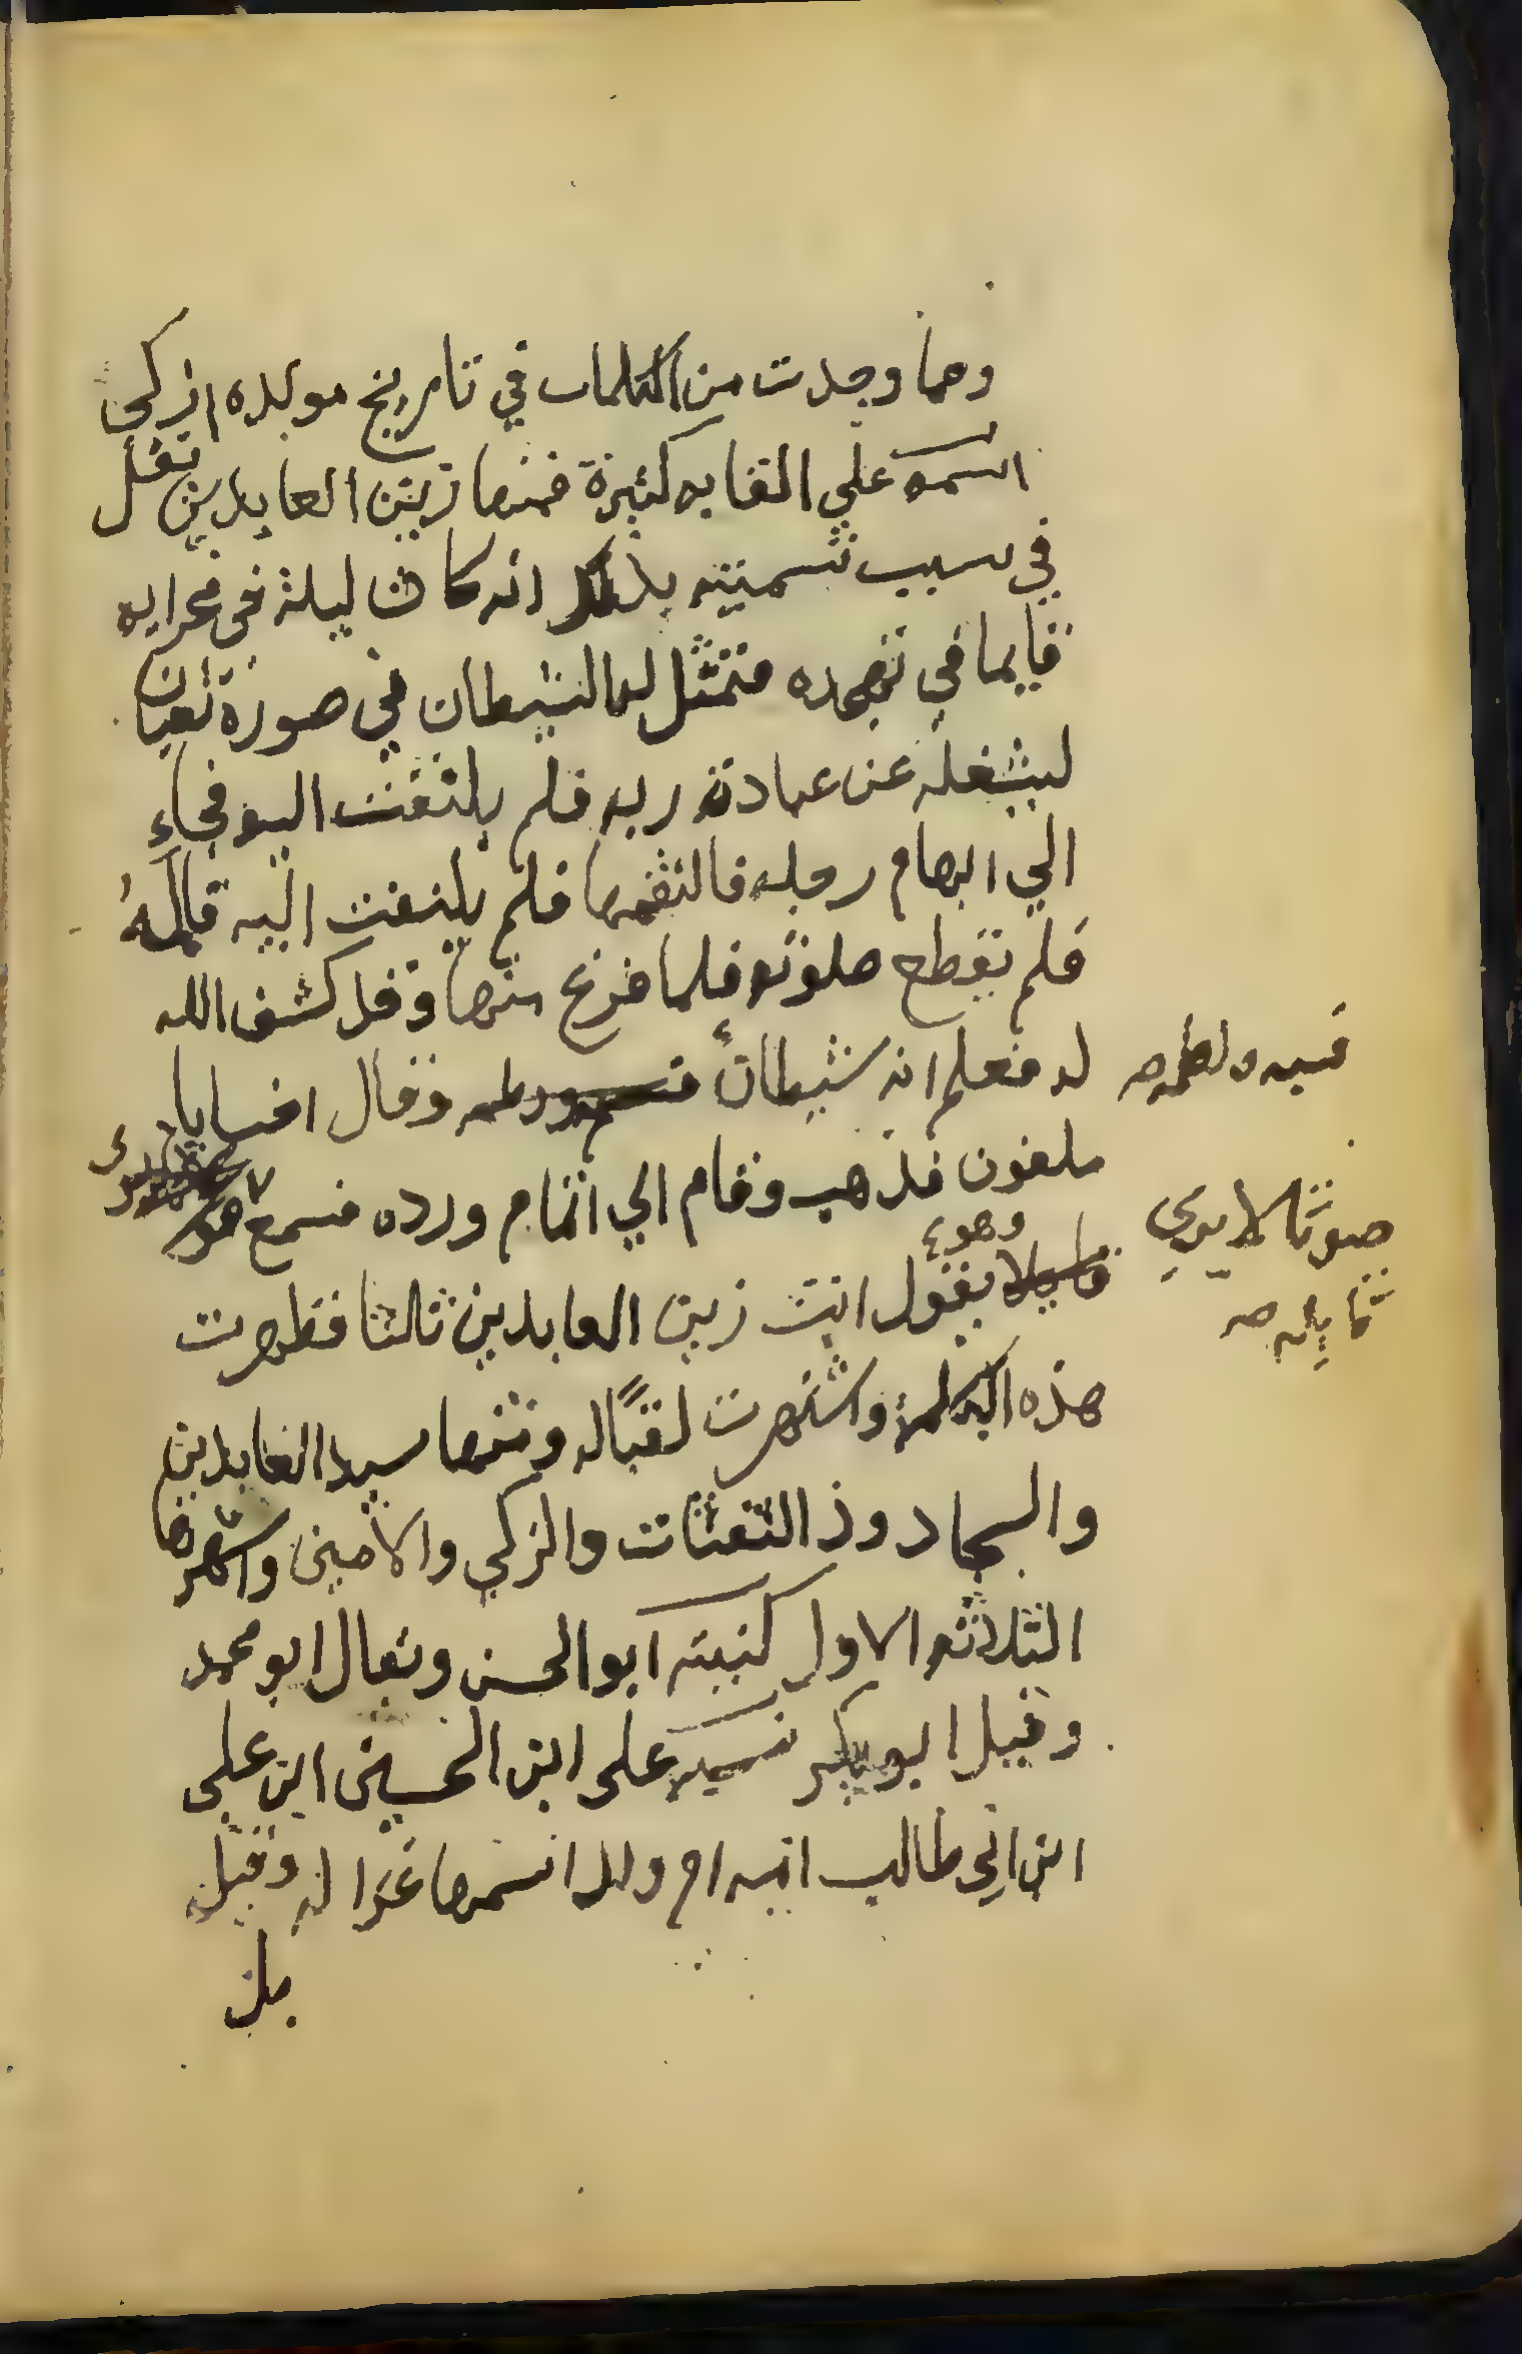 ومما وجدت من الكلمات في تاريخ مولده ازكى
اسمه علي القابه كثيرة فمنها زين العابدين نقل
في سبب تسميته بذلك انه كان ليلة في محرابه
قايما في تهجده فتمثل له الشيطان في صورة ثعبان
ليشغله عن عبادة ربه فلم يلتفت اليه فجاء
الي ابهام رجله فالتقمها فلم يلتفت اليه فالمهُ
فلم يقطع صلوته فلما فرغ منها وقد كشف الله
له فعلم انه شيطان وقال اخسا يا
فسبه ولطمه صح
ملعون فذهب وقام الي اتمام ورده فسمع
صوتا لا يري
قايله صح
وهو يقول انت زين العابدين ثالثا فظهرت
هذه الكلمة واشتهرت لقبًا له ومنها سيد العابدين
والسجاد وذ الثفنات والزكي والامين واشهرها
الثلاثه الاول كنيته ابو الحسن ويقال ابو محمد
وقيل ابو بكر نسبه على ابن الحسين ابن علي
ابن ابي طالب امه ام ولد اسمها غزاله وقيل
بل